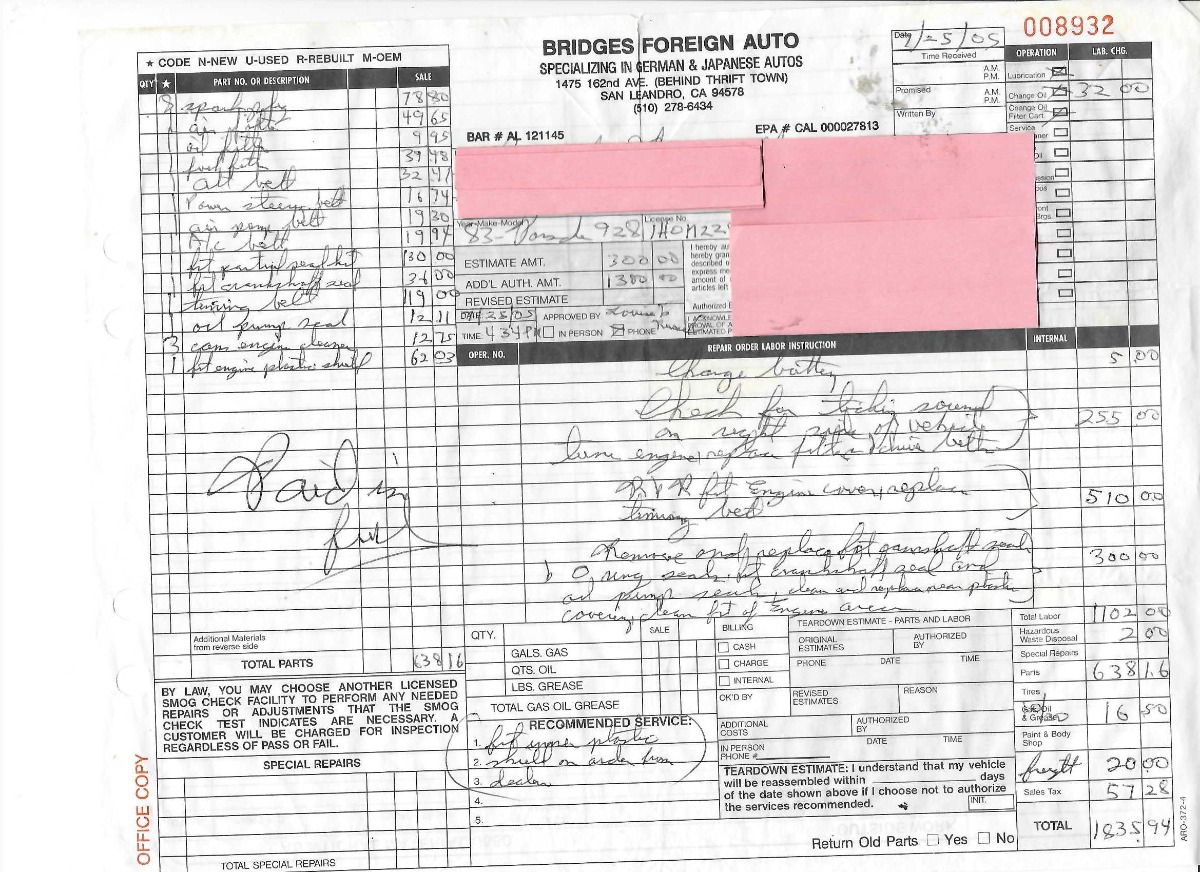 008932
BRIDGES FOREIGN AUTO
SPECIALIZING IN GERMAN & JAPANESE AUTOS
1475 162nd AVE. (BEHIND THRIFT TOWN)
SAN LEANDRO, CA 94578
(510) 278-6434
BAR # AL 121145
EPA # CAL 000027813
Date
Time Received
A.M.
P.M.
Promised
A.M.
P.M.
Written By
OPERATION LAB. CHG.
Lubrication
Change Oil 32 00
Change Oil
Filter Cart.
Service
★ CODE N-NEW U-USED R-REBUILT M-OEM
QTY ★ PART NO. OR DESCRIPTION SALE
8 spark plug 78 80
1 air filter 49 65
1 oil filter 9 95
1 fuel filter 39 48
1 alt belt 32 47
1 Power steering belt 16 74
1 air pump belt 19 30
1 A/C belt 19 94
1 frt partial seal kit 130 00
1 frt crankshaft seal 36 00
1 timing belt 119 00
1 oil pump seal 12 11
3 cans engine cleaner 12 75
1 frt engine plastic shield 62 03
Paid in
full
Additional Materials
from reverse side
TOTAL PARTS 638 16
Year-Make-Model
83-Porsche 928
License No.
ESTIMATE AMT. 300 00
ADD'L AUTH. AMT. 1300 00
REVISED ESTIMATE
DATE
APPROVED BY
TIME 4:34 PM
IN PERSON
PHONE
I hereby
hereby
described
express
amount of
articles left
Authorized
OPER. NO. REPAIR ORDER LABOR INSTRUCTION INTERNAL
Charge battery 5 00
Check for ticking sound
on right side of vehicle 255 00
tune engine, replace filters & drive belts
R & R frt Engine cover, replace
timing belt 510 00
Remove and replace frt camshaft seals
O ring seals, frt crankshaft seal and 300 00
oil pump seal, clean and replace near plastic
covering, clean frt of Engine area
BY LAW, YOU MAY CHOOSE ANOTHER LICENSED
SMOG CHECK FACILITY TO PERFORM ANY NEEDED
REPAIRS OR ADJUSTMENTS THAT THE SMOG
CHECK TEST INDICATES ARE NECESSARY. A
CUSTOMER WILL BE CHARGED FOR INSPECTION
REGARDLESS OF PASS OR FAIL.
SPECIAL REPAIRS
TOTAL SPECIAL REPAIRS
OFFICE COPY
QTY. SALE
GALS. GAS
QTS. OIL
LBS. GREASE
TOTAL GAS OIL GREASE
RECOMMENDED SERVICE:
1. frt upper plastic
2. shield on order from
3. dealer
4.
5.
BILLING
CASH
CHARGE
INTERNAL
OK'D BY
TEARDOWN ESTIMATE - PARTS AND LABOR
ORIGINAL
ESTIMATES
AUTHORIZED
BY
PHONE DATE TIME
REVISED
ESTIMATES
REASON
ADDITIONAL
COSTS
AUTHORIZED
BY
IN PERSON
PHONE #
DATE TIME
TEARDOWN ESTIMATE: I understand that my vehicle
will be reassembled within days
of the date shown above if I choose not to authorize
the services recommended.
INIT.
Return Old Parts Yes No
Total Labor 1102 00
Hazardous
Waste Disposal 2 00
Special Repairs
Parts 638 16
Tires
Gas, Oil
& Grease 16 50
Paint & Body
Shop
freight 20 00
Sales Tax 57 28
TOTAL 1835 94
ARO-372-4